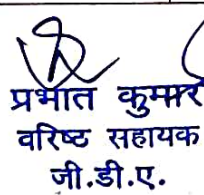 प्रभात कुमार
वरिष्ठ सहायक
जी.डी.ए.